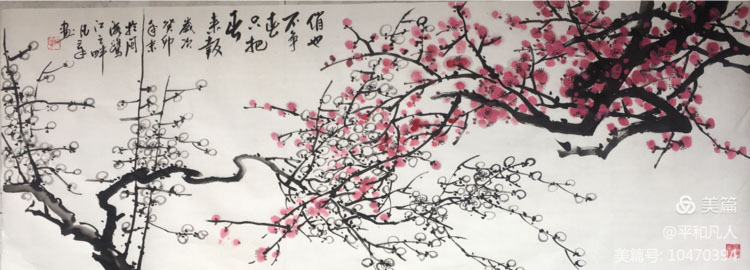 俏也
不争
春
只把
春
来报
岁次
癸卯
年末
江之畔
画
美篇
@平和凡人
美篇号: 10470394